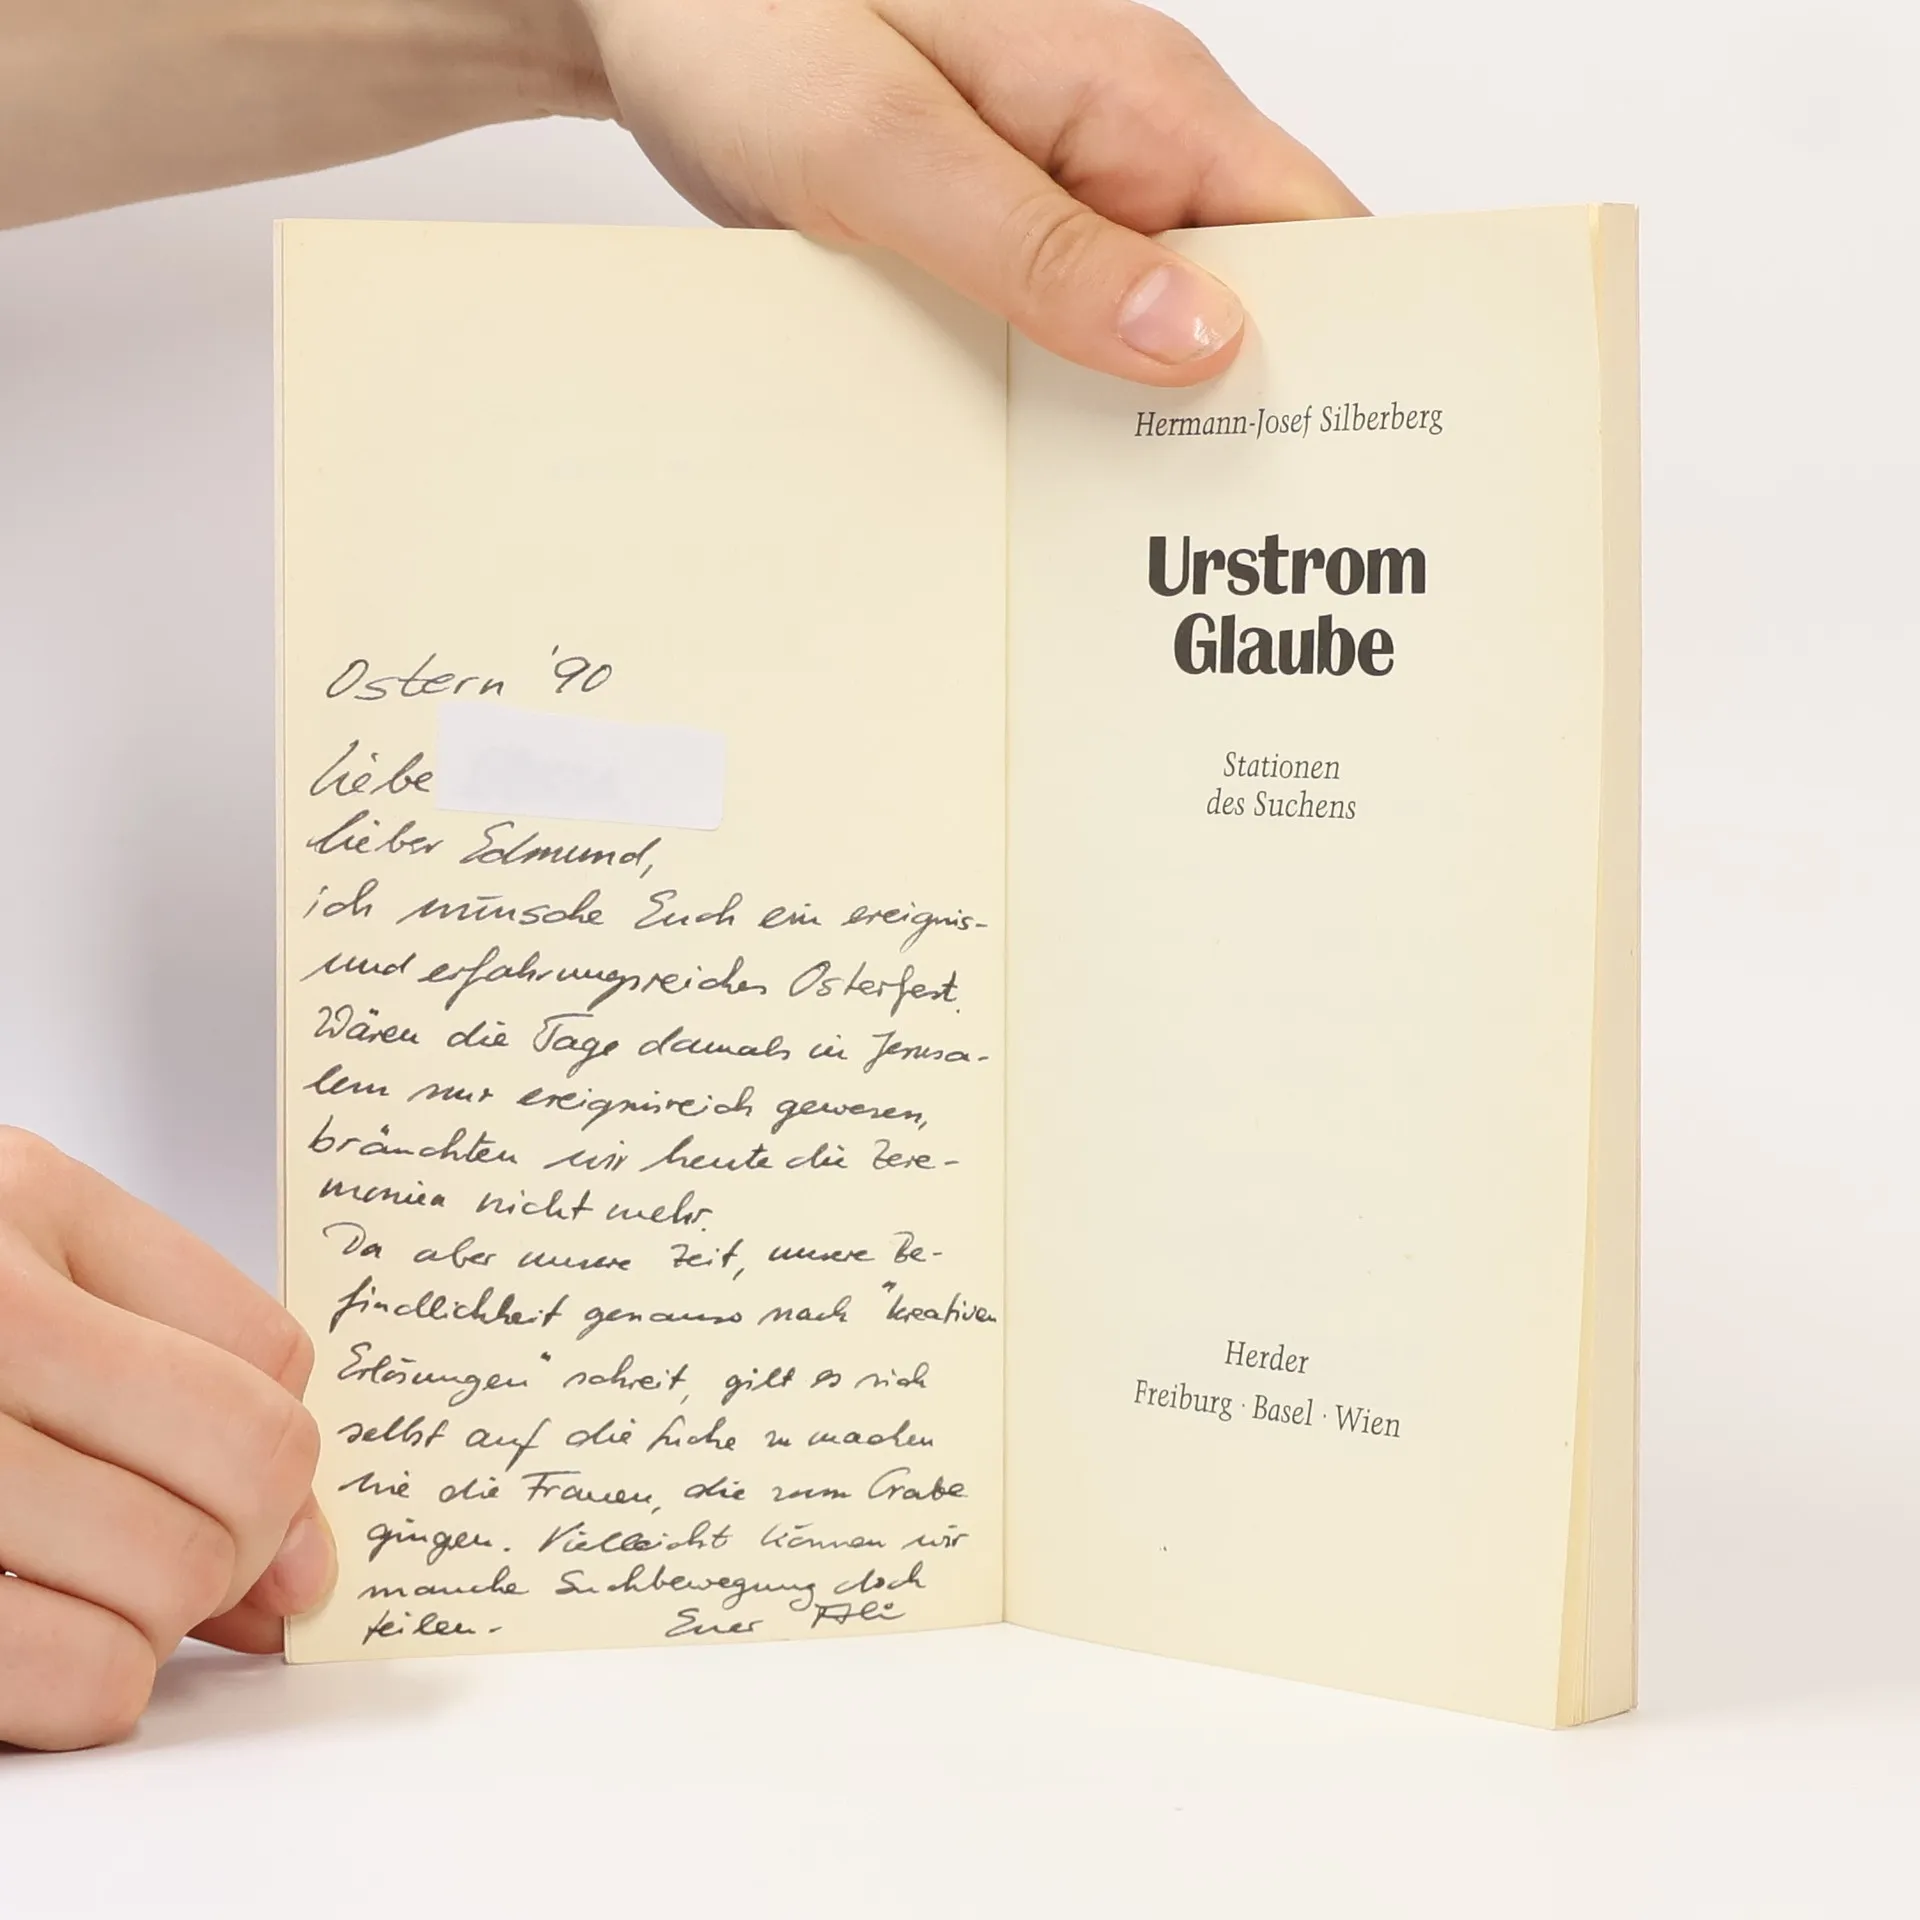 Ostern '90
Liebe
lieber Edmund,
ich wünsche Euch ein ereignis-
und erfahrungsreiches Osterfest.
Wären die Tage damals in Jerusa-
lem nur ereignisreich gewesen,
bräuchten wir heute die Zere-
monien nicht mehr.
Da aber unsere Zeit, unsere Be-
findlichkeit genauso nach "kreativen
Erlösungen" schreit, gilt es sich
selbst auf die Suche zu machen
wie die Frauen, die zum Grabe
gingen. Vielleicht können wir
manche Suchbewegung doch
teilen.-
Euer
Hermann-Josef Silberberg
Urstrom
Glaube
Stationen
des Suchens
Herder
Freiburg · Basel · Wien